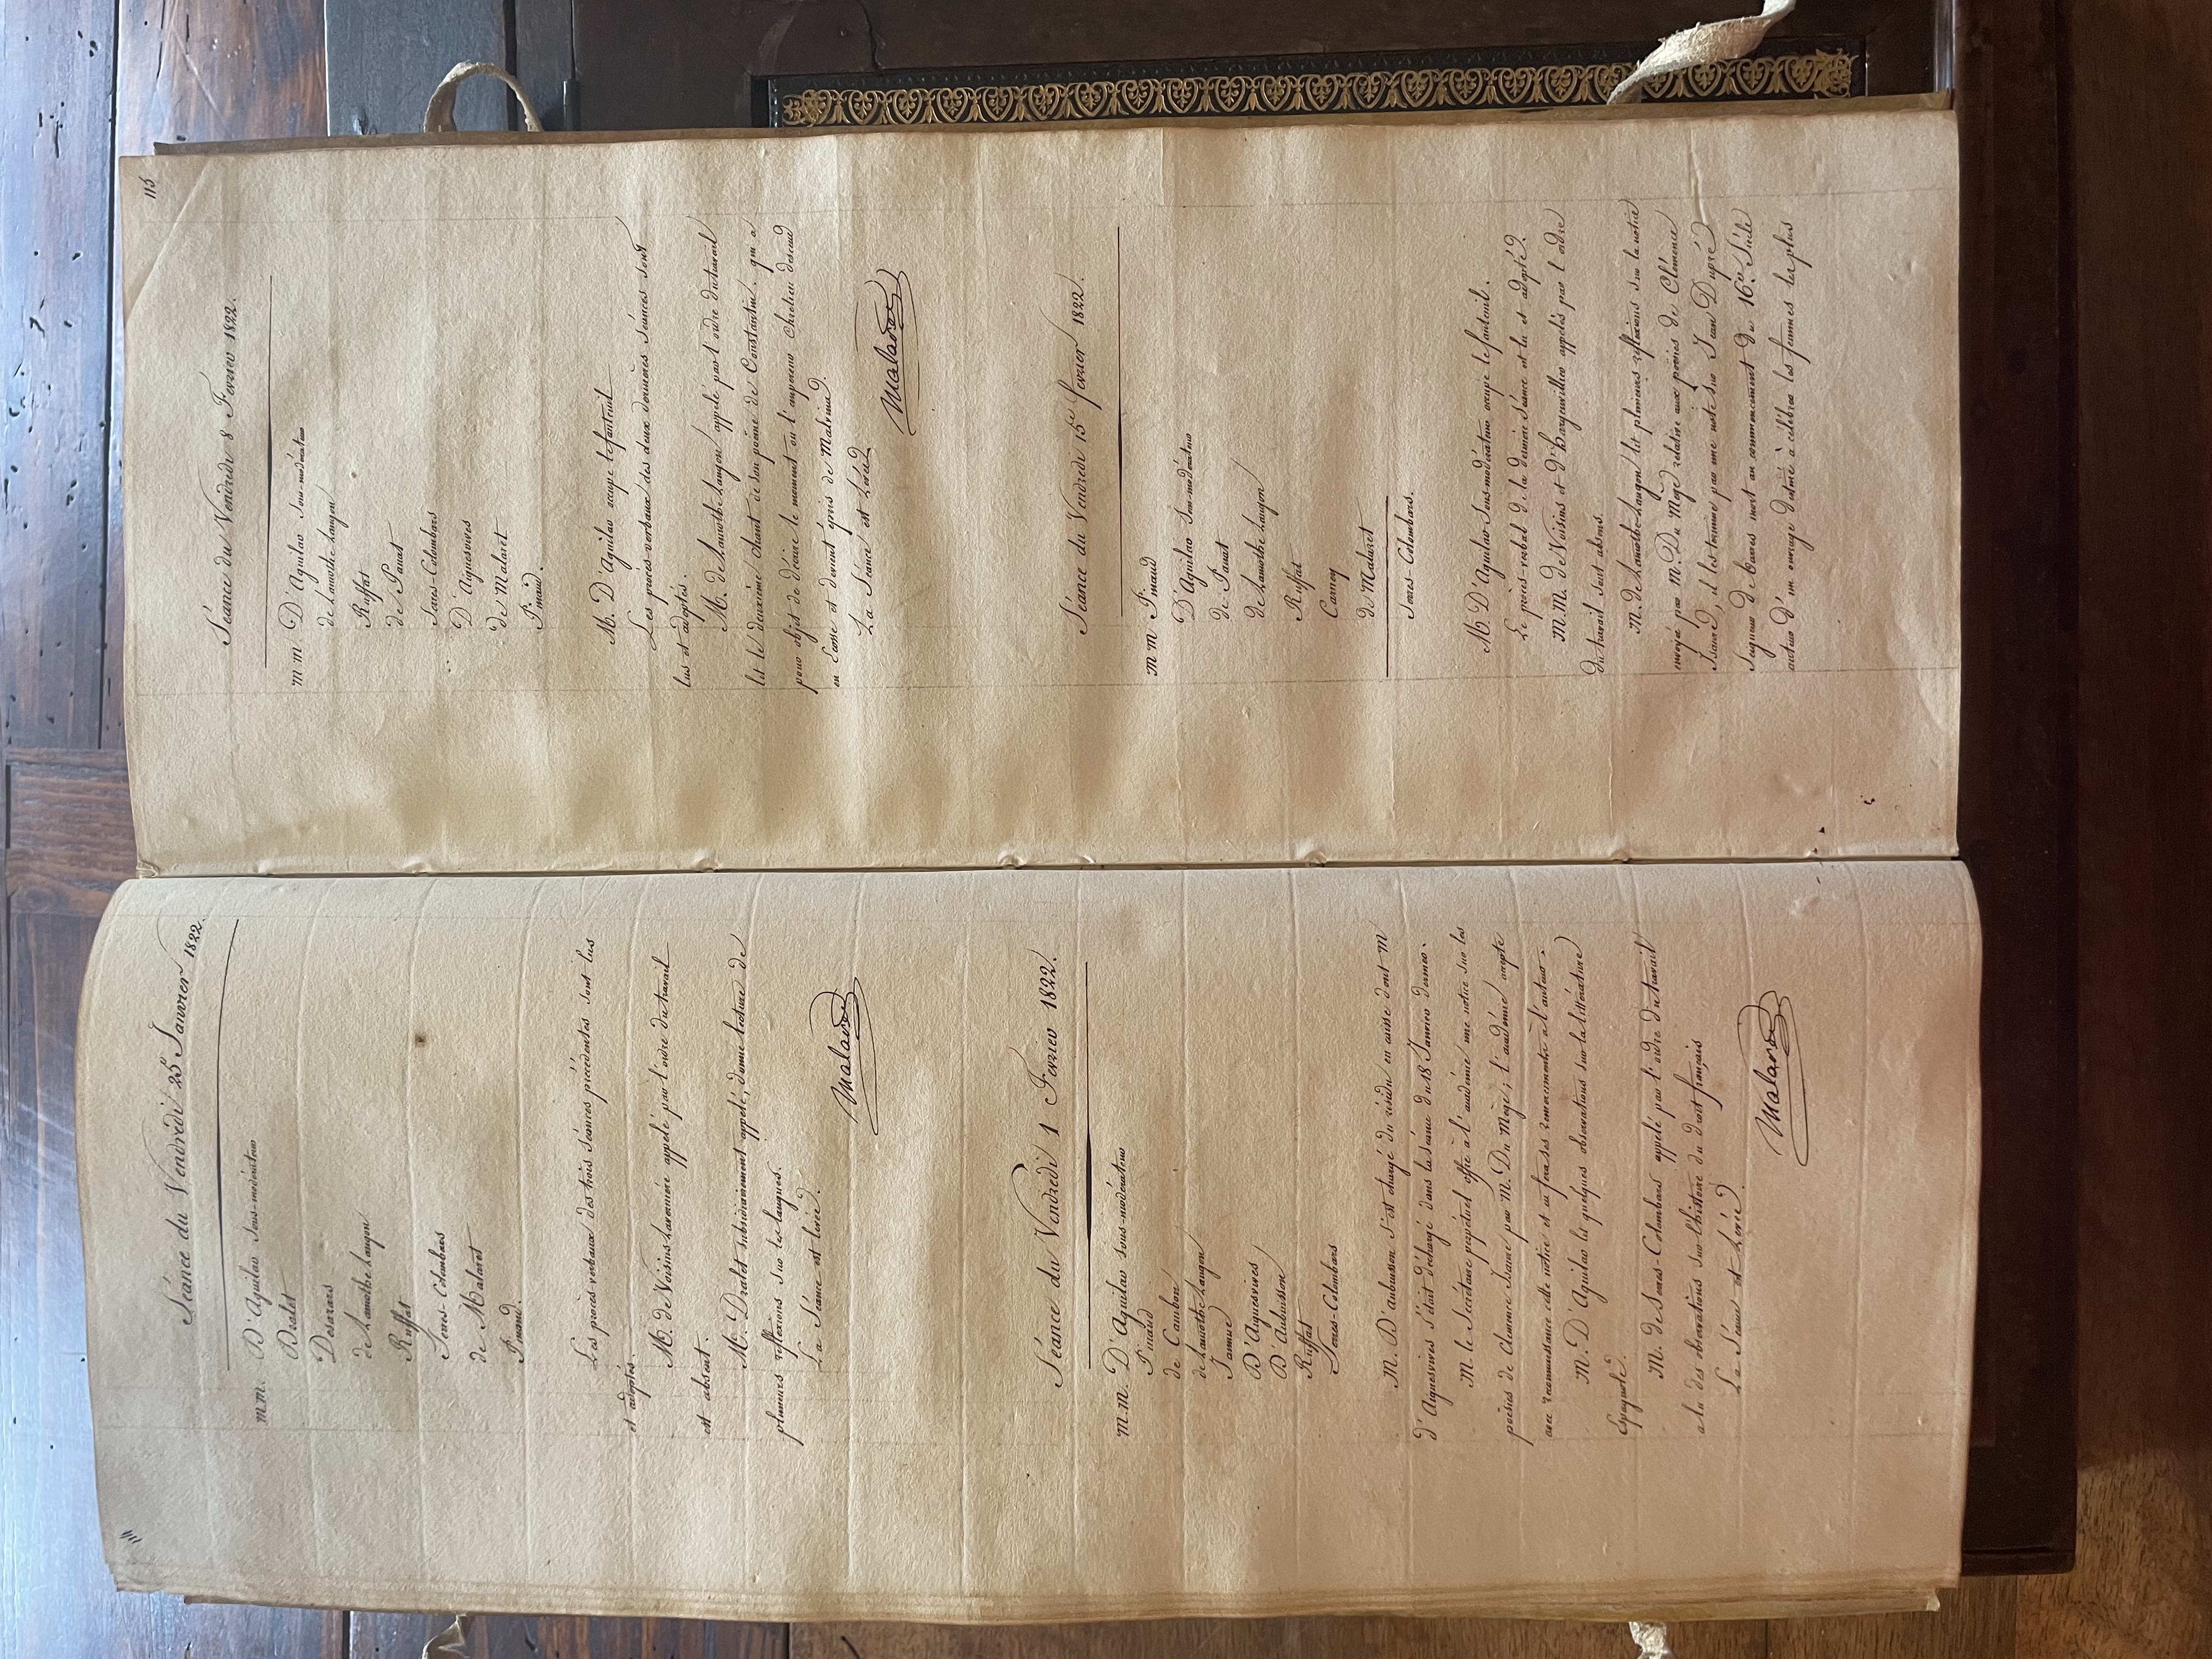 Séance du Vendredi 25 Janvier 1822.
m.m. D'Aguilar Sous-modérateur
Dralet
Desazars
de Lamothe Langon
Ruffat
Serres-Colombars
de Malaret
Pinaud.
Les procès-verbaux des trois séances précédentes sont lus
et adoptés.
M. de Voisins Laverniere appelé par l'ordre du travail
est absent.
M. Dralet subsidiairement appelé, donne lecture de
plusieurs réflexions sur les langues.
La Séance est levée.
Malaret
Séance du Vendredi 1 Fevrier 1822.
m.m. D'Aguilar sous-modérateur
Pinaud
de Cambon
de Lamothe Langon
Jamme
D'Aiguesvives
D'Aubuisson
Ruffat
Serres-Colombars
M. D'aubuisson s'est chargé du résidu en caisse dont m
d'Aiguesvives s'était déchargé dans la séance du 18 Janvier dernier.
M. le Secrétaire perpétuel offre à l'académie une notice sur les
poésies de Clémence Isaure par M. Du Mège; l'académie accepte
avec reconnaissance cette notice et en fera ses remerciments à l'auteur.
M. D'Aguilar lit quelques observations sur la littérature
Espagnole.
M. de Serres-Colombars appelé par l'ordre du travail
a lu des observations sur l'histoire du droit français
La Séance est levée.
Malaret
115
Séance du Vendredi 8 Fevrier 1822.
m.m. D'Aguilar Sous-modérateur
de Lamothe Langon
Ruffat
de Panat
Serres-Colombars
D'Aiguesvives
de Malaret
Pinaud.
M. D'Aguilar occupe le fauteuil
Les procès-verbaux des deux dernieres séances sont
lus et adoptés.
M. de Lamothe Langon appelé par l'ordre du travail
lit le deuxième chant de son poëme de Constantin. qui a
pour objet de décrire le moment ou l'empereur Chretien descend
en Ecosse et devient épris de Malvina.
La Séance est levée
Malaret
Séance du Vendredi 15e fevrier 1822.
m m Pinaud
D'Aguilar Sou-modérateur
de Panat
de Lamothe Langon
Ruffat
Carney
de Malaret
Serres-Colombars.
M. D'Aguilar Sous-modérateur occupe le fauteuil.
Le procès-verbal de la dernière séance est lu et adopté.
M.M. de Voisins et d'Hargenvillier appelés par l'ordre
du travail sont absens.
M. de Lamothe Langon lit plusieurs réflexions sur la notice
envoyée par M. Du Mège relative aux poésies de Clémence
Isaure, il les termine par une note sur Jean Dupré
Seigneur de Barres mort au commencement du 16e. Siècle
auteur d'un ouvrage destiné à célébrer les femmes les plus